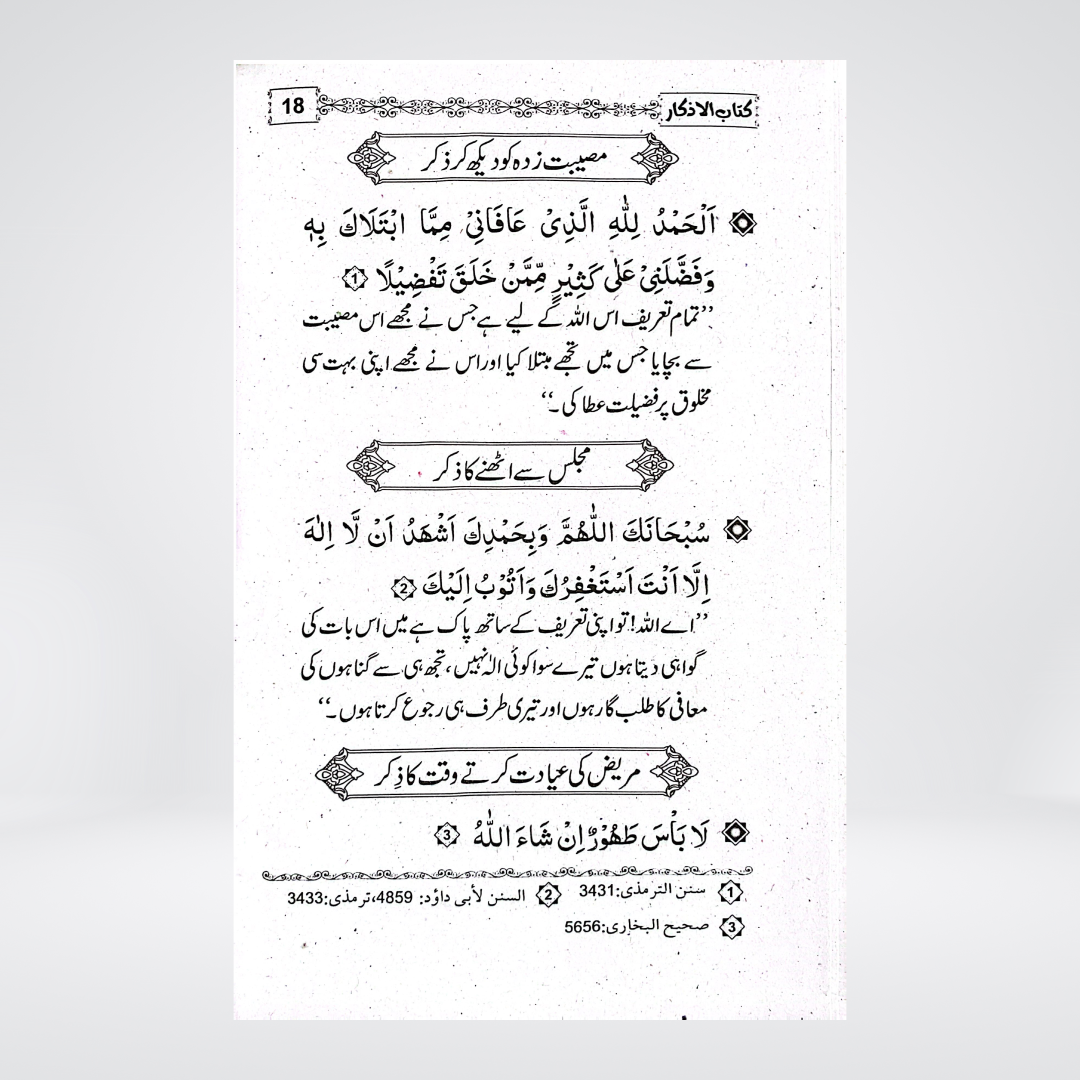 کتاب الاذکار 18
مصیبت زدہ کو دیکھ کر ذکر
اَلْحَمْدُ لِلّٰهِ الَّذِیْ عَافَانِیْ مِمَّا ابْتَلَاكَ بِهٖ
وَفَضَّلَنِیْ عَلٰی كَثِیْرٍ مِّمَّنْ خَلَقَ تَفْضِیْلًا 1
’’تمام تعریف اس اللہ کے لیے ہے جس نے مجھے اس مصیبت
سے بچایا جس میں تجھے مبتلا کیا اور اس نے مجھے اپنی بہت سی
مخلوق پر فضیلت عطا کی۔‘‘
مجلس سے اٹھنے کا ذکر
سُبْحَانَكَ اللّٰهُمَّ وَبِحَمْدِكَ اَشْهَدُ اَنْ لَّا اِلٰهَ
اِلَّا اَنْتَ اَسْتَغْفِرُكَ وَاَتُوْبُ اِلَیْكَ 2
’’اے اللہ! تو اپنی تعریف کے ساتھ پاک ہے میں اس بات کی
گواہی دیتا ہوں تیرے سوا کوئی الٰہ نہیں، تجھ ہی سے گناہوں کی
معافی کا طلب گار ہوں اور تیری طرف ہی رجوع کرتا ہوں۔‘‘
مریض کی عیادت کرتے وقت کا ذِکر
لَا بَاْسَ طَهُوْرٌ اِنْ شَاءَ اللّٰهُ 3
1 سنن الترمذی:3431 2 السنن لأبی داؤد: 4859،ترمذی:3433
3 صحیح البخاری:5656